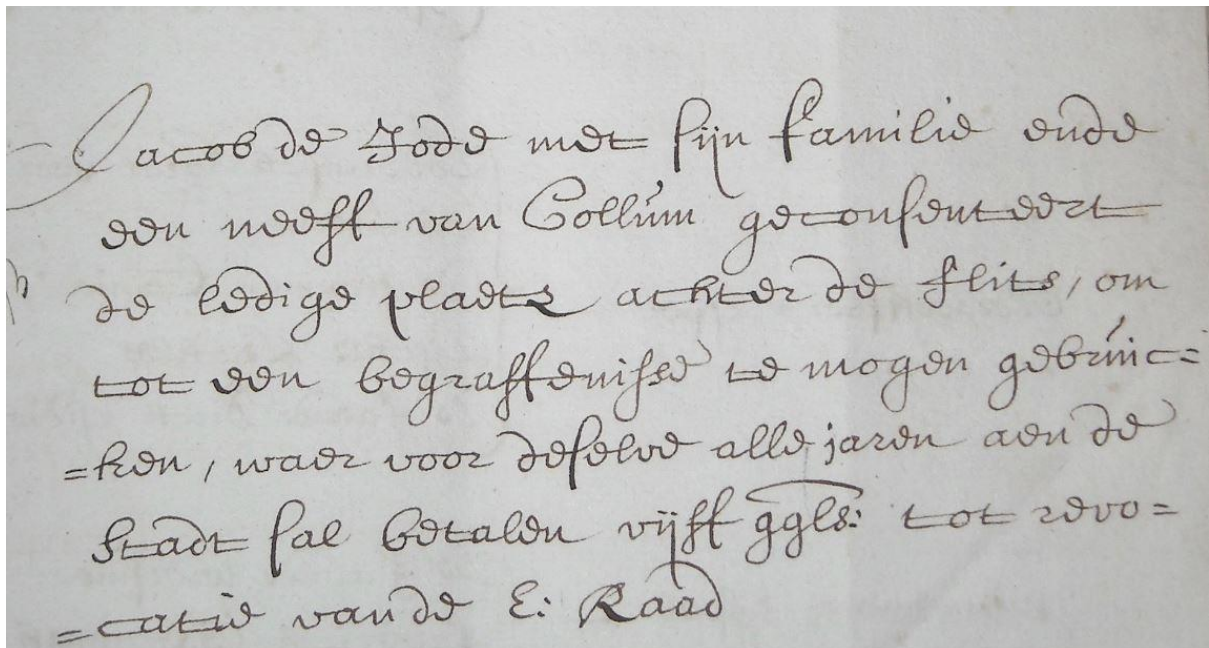 Jacob de Jode met sijn familie ende
een neeff van Collum geconsenteert
de ledige plaets achter de flits, om
tot een begraffenisse te mogen gebruic=
=ken, waer voor deselve alle jaren aen de
stadt sal betalen vijff ggls: tot revo=
=catie van de E: Raad